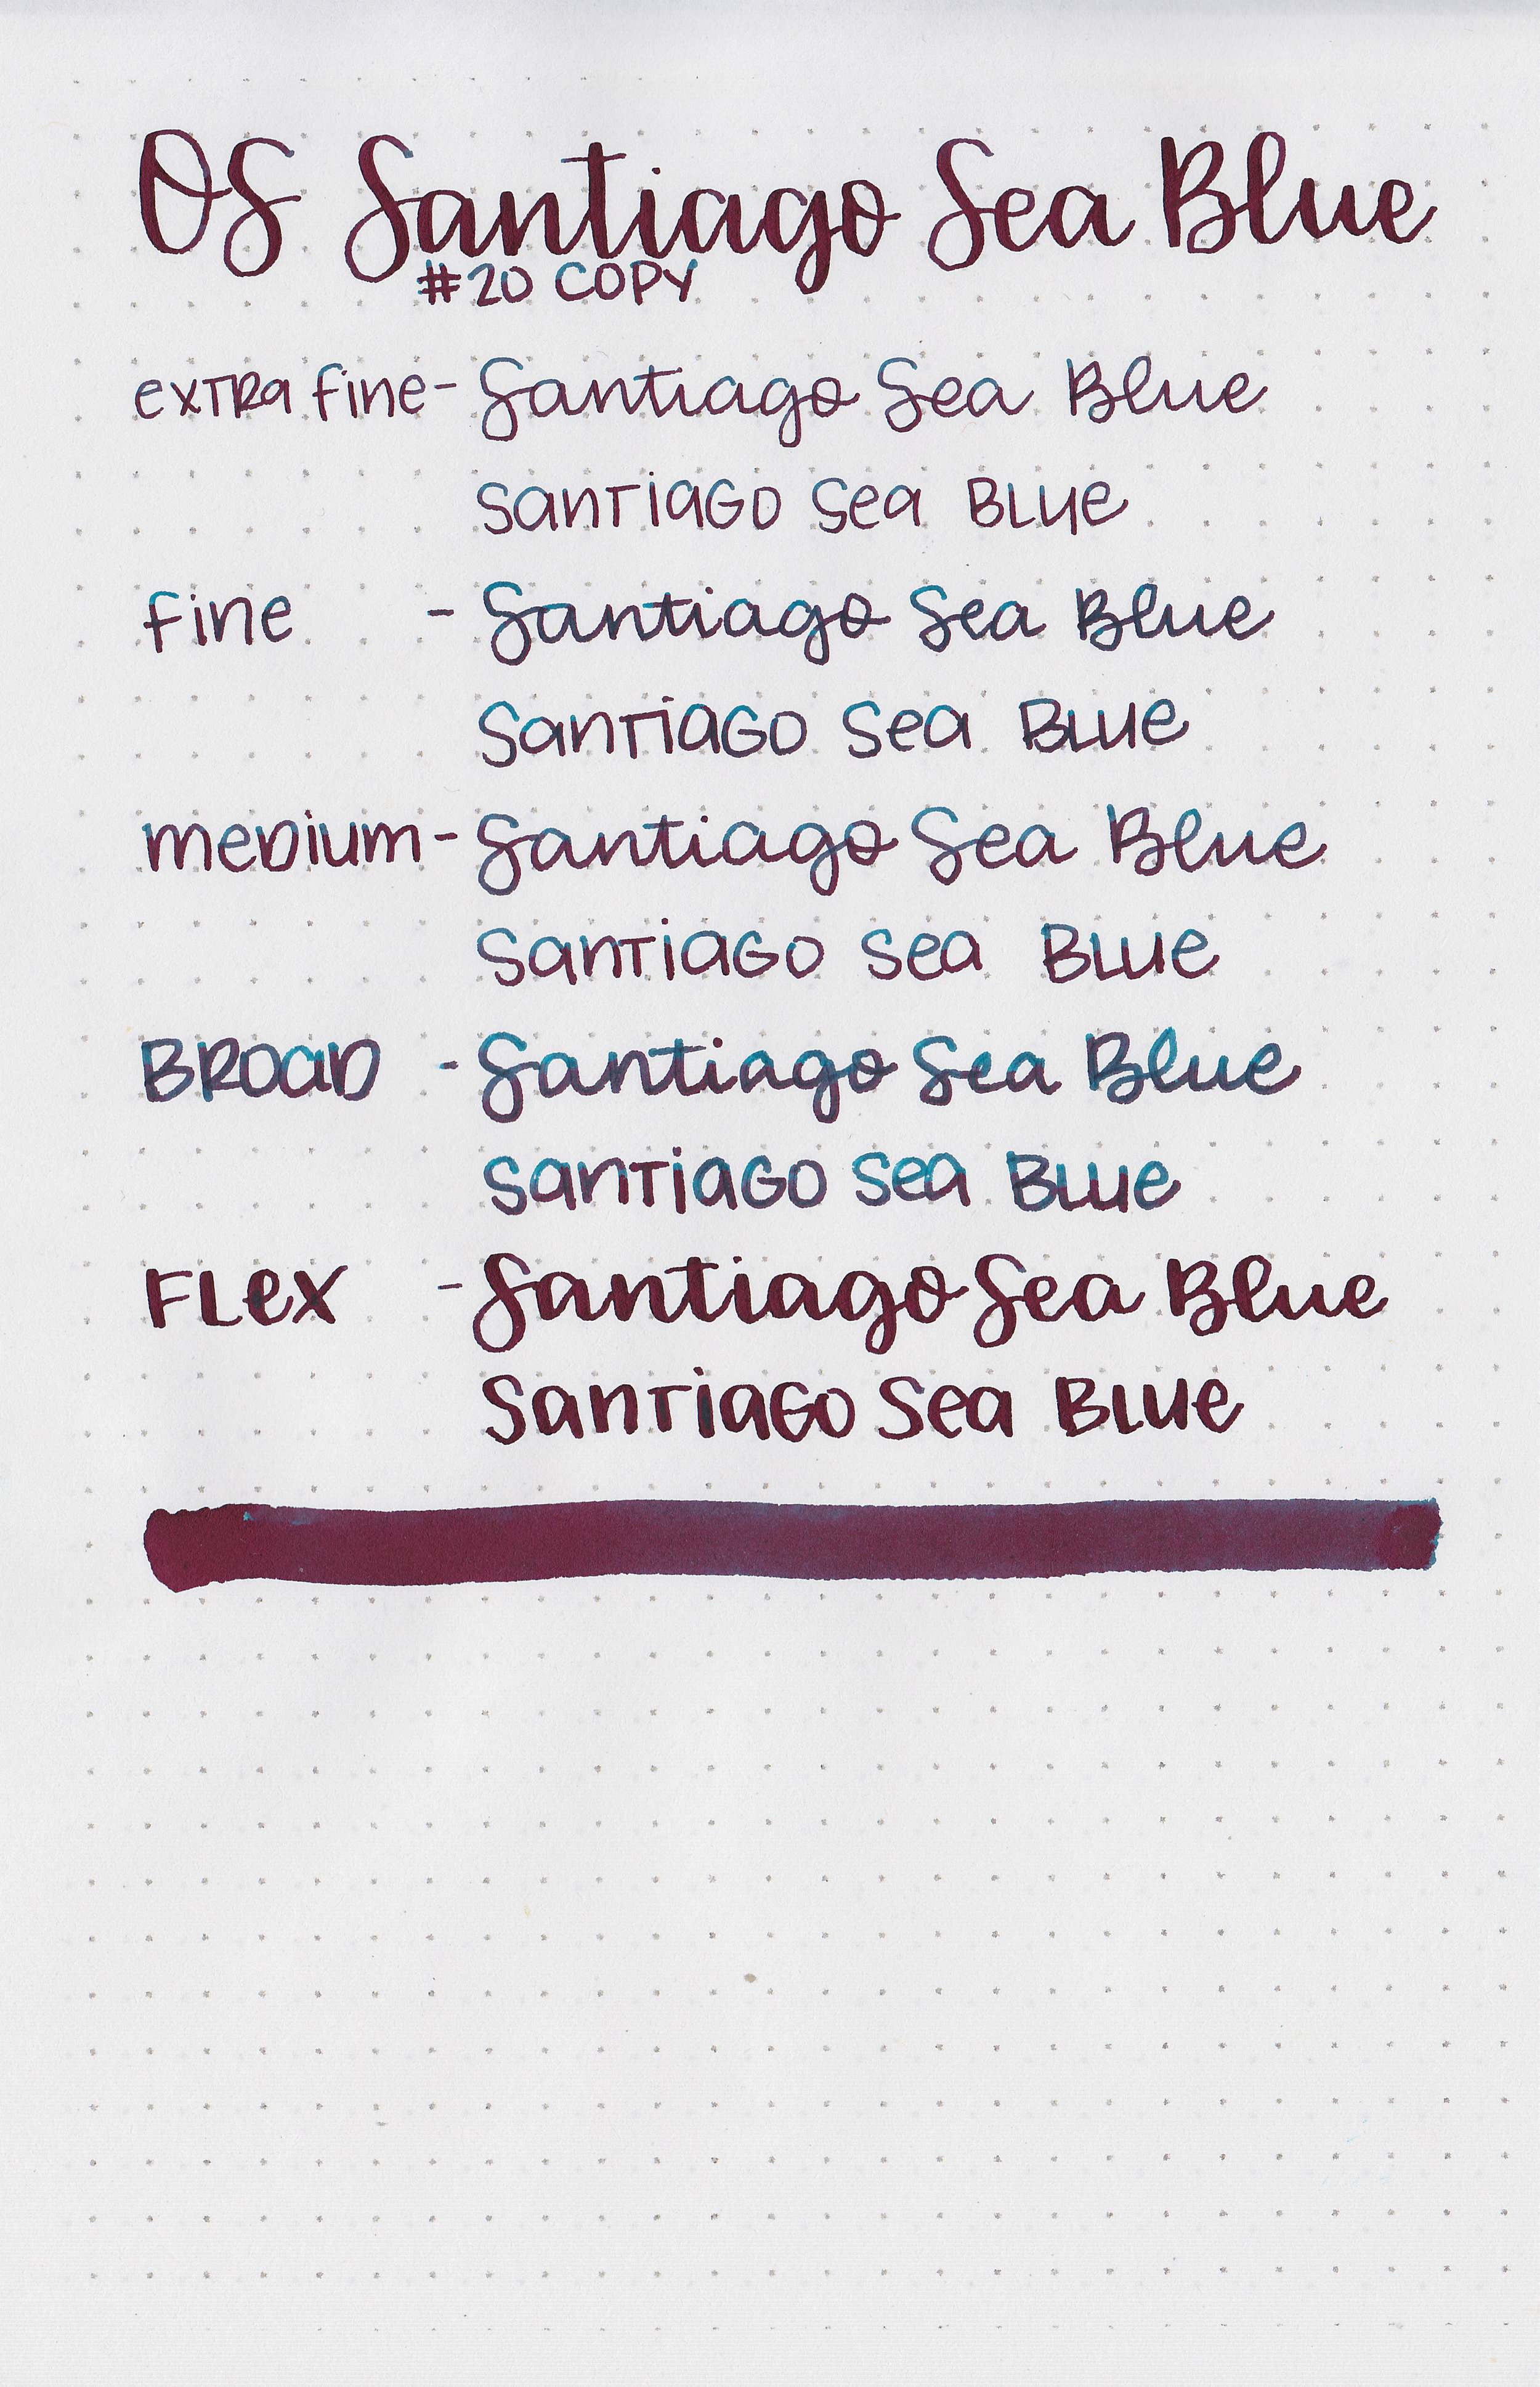 OS Santiago Sea Blue
#20 COPY
extra fine - Santiago Sea Blue
Santiago Sea Blue
fine - Santiago Sea Blue
Santiago Sea Blue
medium - Santiago Sea Blue
Santiago Sea Blue
Broad - Santiago Sea Blue
Santiago Sea Blue
Flex - Santiago Sea Blue
Santiago Sea Blue